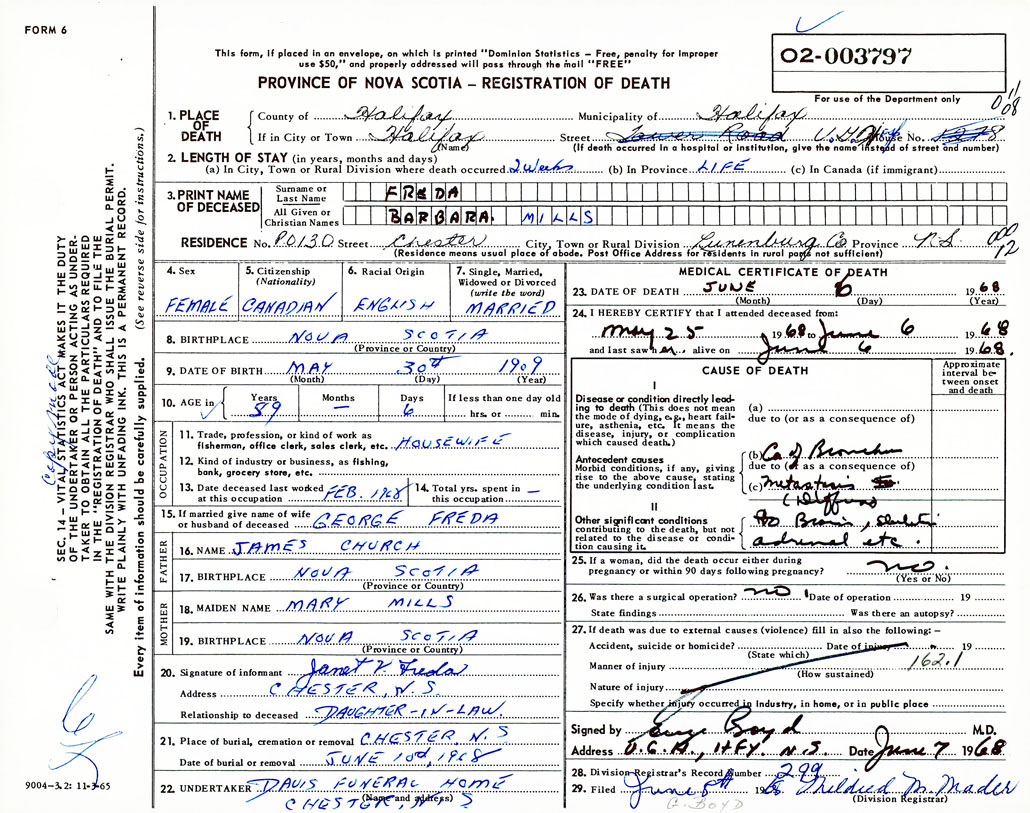 FORM 6
This form, if placed in an envelope, on which is printed "Dominion Statistics – Free, penalty for improper
use $50," and properly addressed will pass through the mail "FREE"
02-003797
PROVINCE OF NOVA SCOTIA – REGISTRATION OF DEATH
For use of the Department only
11
008
1. PLACE OF DEATH
County of Halifax Municipality of Halifax
If in City or Town Halifax Street Tower Road V.G.H. House No.
(Name) (If death occurred in a hospital or institution, give the name instead of street and number)
2. LENGTH OF STAY (in years, months and days)
(a) In City, Town or Rural Division where death occurred 2 Weeks (b) In Province LIFE (c) In Canada (if immigrant)
3. PRINT NAME OF DECEASED
Surname or Last Name FREDA
All Given or Christian Names BARBARA. MILLS
RESIDENCE No. P.O 130 Street Chester City, Town or Rural Division Lunenburg Co Province N.S. 000
12
(Residence means usual place of abode. Post Office Address for residents in rural parts not sufficient)
4. Sex
FEMALE
5. Citizenship
(Nationality)
CANADIAN
6. Racial Origin
ENGLISH
7. Single, Married, Widowed or Divorced
(write the word)
MARRIED
8. BIRTHPLACE NOVA SCOTIA
(Province or Country)
9. DATE OF BIRTH MAY 30th 1909
(Month) (Day) (Year)
10. AGE in Years Months Days If less than one day old
59 – 6 hrs. or min.
OCCUPATION
11. Trade, profession, or kind of work as
fisherman, office clerk, sales clerk, etc. HOUSEWIFE
12. Kind of industry or business, as fishing,
bank, grocery store, etc.
13. Date deceased last worked at this occupation FEB. 1968 14. Total yrs. spent in this occupation –
15. If married give name of wife
or husband of deceased GEORGE FREDA
FATHER
16. NAME JAMES CHURCH
17. BIRTHPLACE NOVA SCOTIA
(Province or Country)
MOTHER
18. MAIDEN NAME MARY MILLS
19. BIRTHPLACE NOVA SCOTIA
(Province or Country)
20. Signature of informant Janet V Freda
Address CHESTER, N.S.
Relationship to deceased DAUGHTER-IN-LAW.
21. Place of burial, cremation or removal CHESTER N.S
Date of burial or removal JUNE 10th, 1968
22. UNDERTAKER DAVIS FUNERAL HOME
(Name and address)
CHESTER, N S
MEDICAL CERTIFICATE OF DEATH
23. DATE OF DEATH JUNE 6 19 68
(Month) (Day) (Year)
24. I HEREBY CERTIFY that I attended deceased from:
May 25 19 68 to June 6 19 68
and last saw her alive on June 6 19 68.
CAUSE OF DEATH
Approximate interval between onset and death
I
Disease or condition directly leading to death (This does not mean the mode of dying, e.g., heart failure, asthenia, etc. It means the disease, injury, or complication which caused death.)
(a)
due to (or as a consequence of)
Antecedent causes
Morbid conditions, if any, giving rise to the above cause, stating the underlying condition last.
(b) Ca of Bronchus
due to (or as a consequence of)
(c) Metastasis
(Diffuse)
II
Other significant conditions
contributing to the death, but not related to the disease or condition causing it.
to Brain, skeleton
adrenal etc.
25. If a woman, did the death occur either during
pregnancy or within 90 days following pregnancy? no.
(Yes or No)
26. Was there a surgical operation? no Date of operation 19
State findings Was there an autopsy?
27. If death was due to external causes (violence) fill in also the following: –
Accident, suicide or homicide? Date of injury 19
(State which)
162.1
Manner of injury
(How sustained)
Nature of injury
Specify whether injury occurred in Industry, in home, or in public place
Signed by Boyd M.D.
Address V.G.H., HFX. N.S Date June 7 19 68
28. Division Registrar's Record Number 299
29. Filed June 8th 1968 Mildred M. Mader
(Division Registrar)
G. BOYD
SEC. 14 – VITAL STATISTICS ACT MAKES IT THE DUTY
OF THE UNDERTAKER OR PERSON ACTING AS UNDER-
TAKER TO OBTAIN ALL THE PARTICULARS REQUIRED
IN THE "REGISTRATION OF DEATH" AND TO FILE THE
SAME WITH THE DIVISION REGISTRAR WHO SHALL ISSUE THE BURIAL PERMIT.
WRITE PLAINLY WITH UNFADING INK. THIS IS A PERMANENT RECORD.
Every item of information should be carefully supplied. (See reverse side for instructions.)
Copy made
9004–3.2: 11-3-65